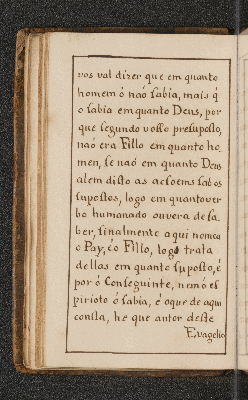 vos val dizer que em quanto
homem ó naó sabia, mais q̃
o sabia em quanto Deus, por
que segundo vosso presuposto,
naó era Fillo em quanto ho-
men, se naó em quanto Deus
alem disto as acsoems saó os
supostos, logo em quanto ver
bo humanado ouvera de sa-
ber, finalmente aqui nomea
o Pay, é o Fillo, logo trata
dellas em quanto suposto, é
por ó Conseguinte, nem ó es
pirioto ó sabia, é o que de aqui
consta, he que autor deste
Evagelio